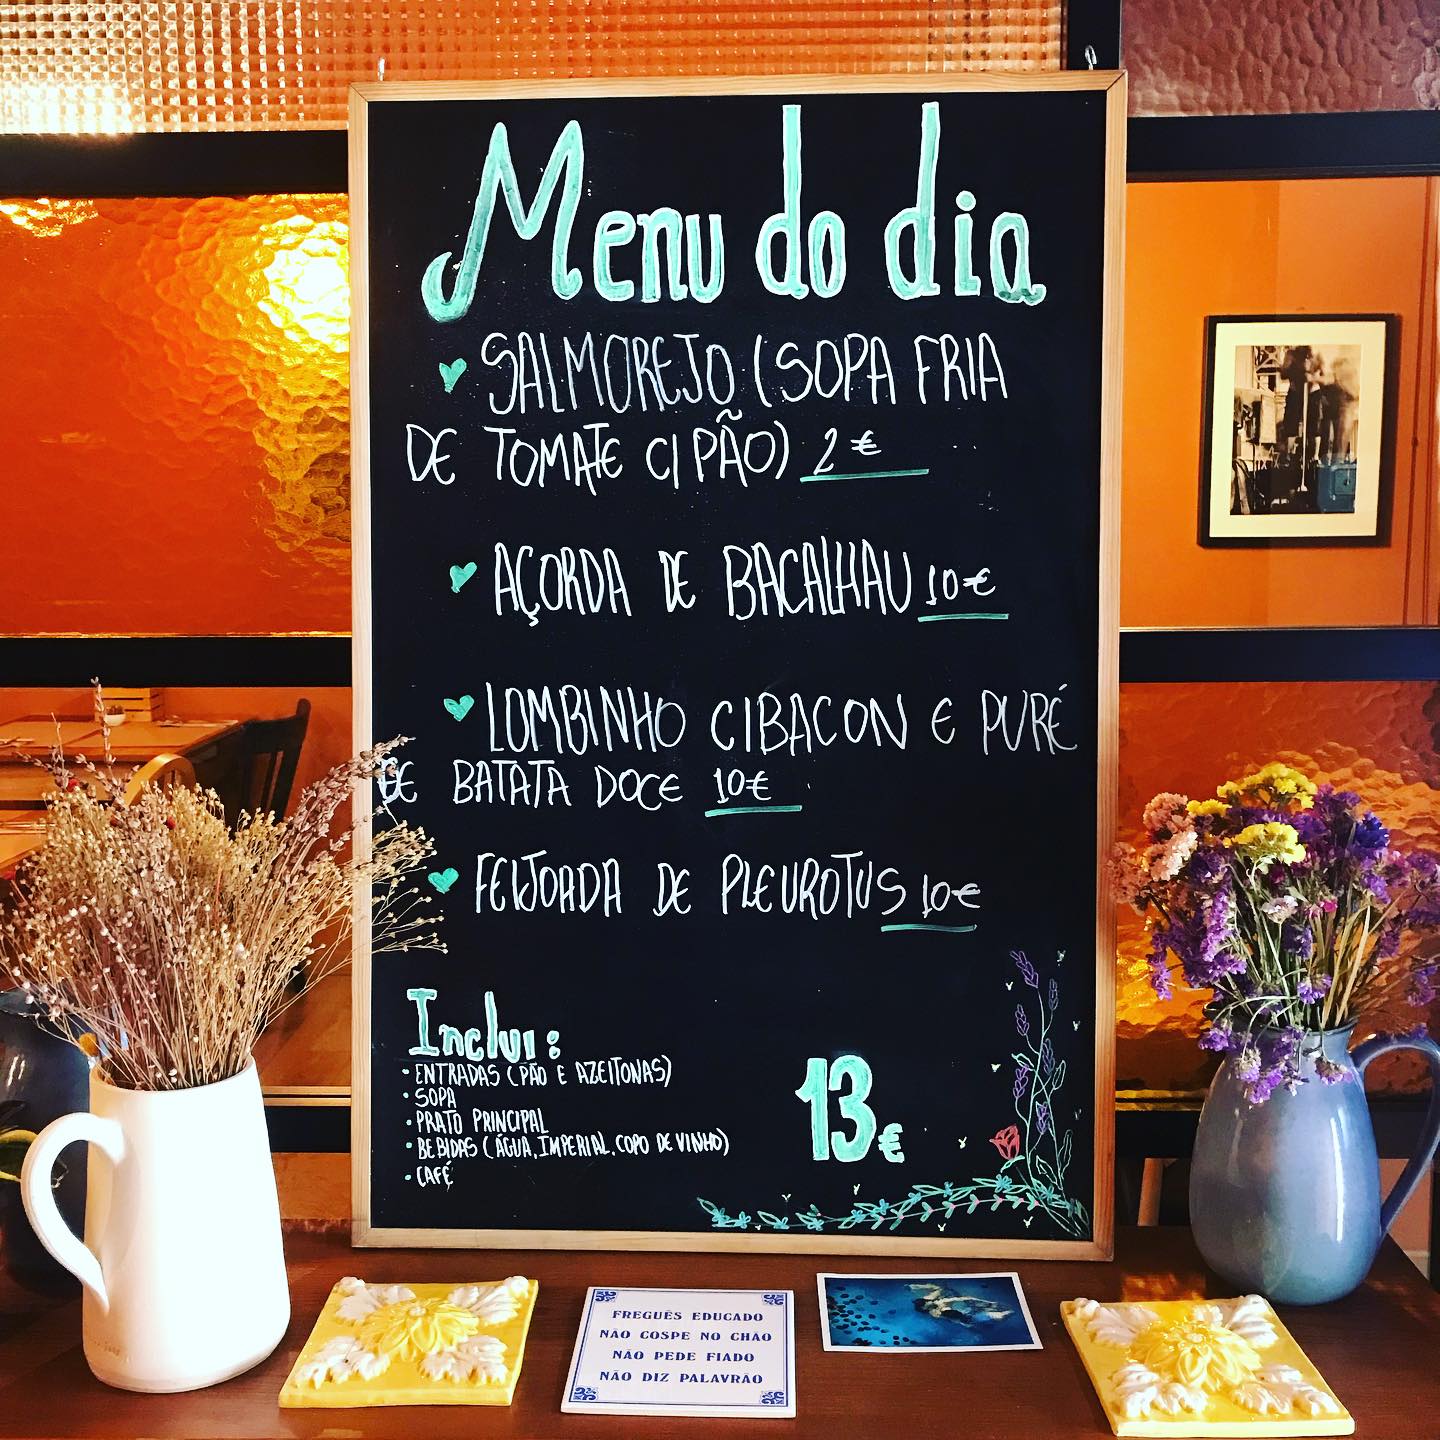 Menu do dia
SALMOREJO (SOPA FRIA
DE TOMATE C/ PÃO) 2€
AÇORDA DE BACALHAU 10€
LOMBINHO C/BACON E PURÉ
DE BATATA DOCE 10€
FEIJOADA DE PLEUROTUS 10€
Inclui:
• ENTRADAS (PÃO E AZEITONAS)
• SOPA
• PRATO PRINCIPAL
• BEBIDAS (ÁGUA, IMPERIAL, COPO DE VINHO)
• CAFÉ
13€
FREGUÊS EDUCADO
NÃO COSPE NO CHÃO
NÃO PEDE FIADO
NÃO DIZ PALAVRÃO